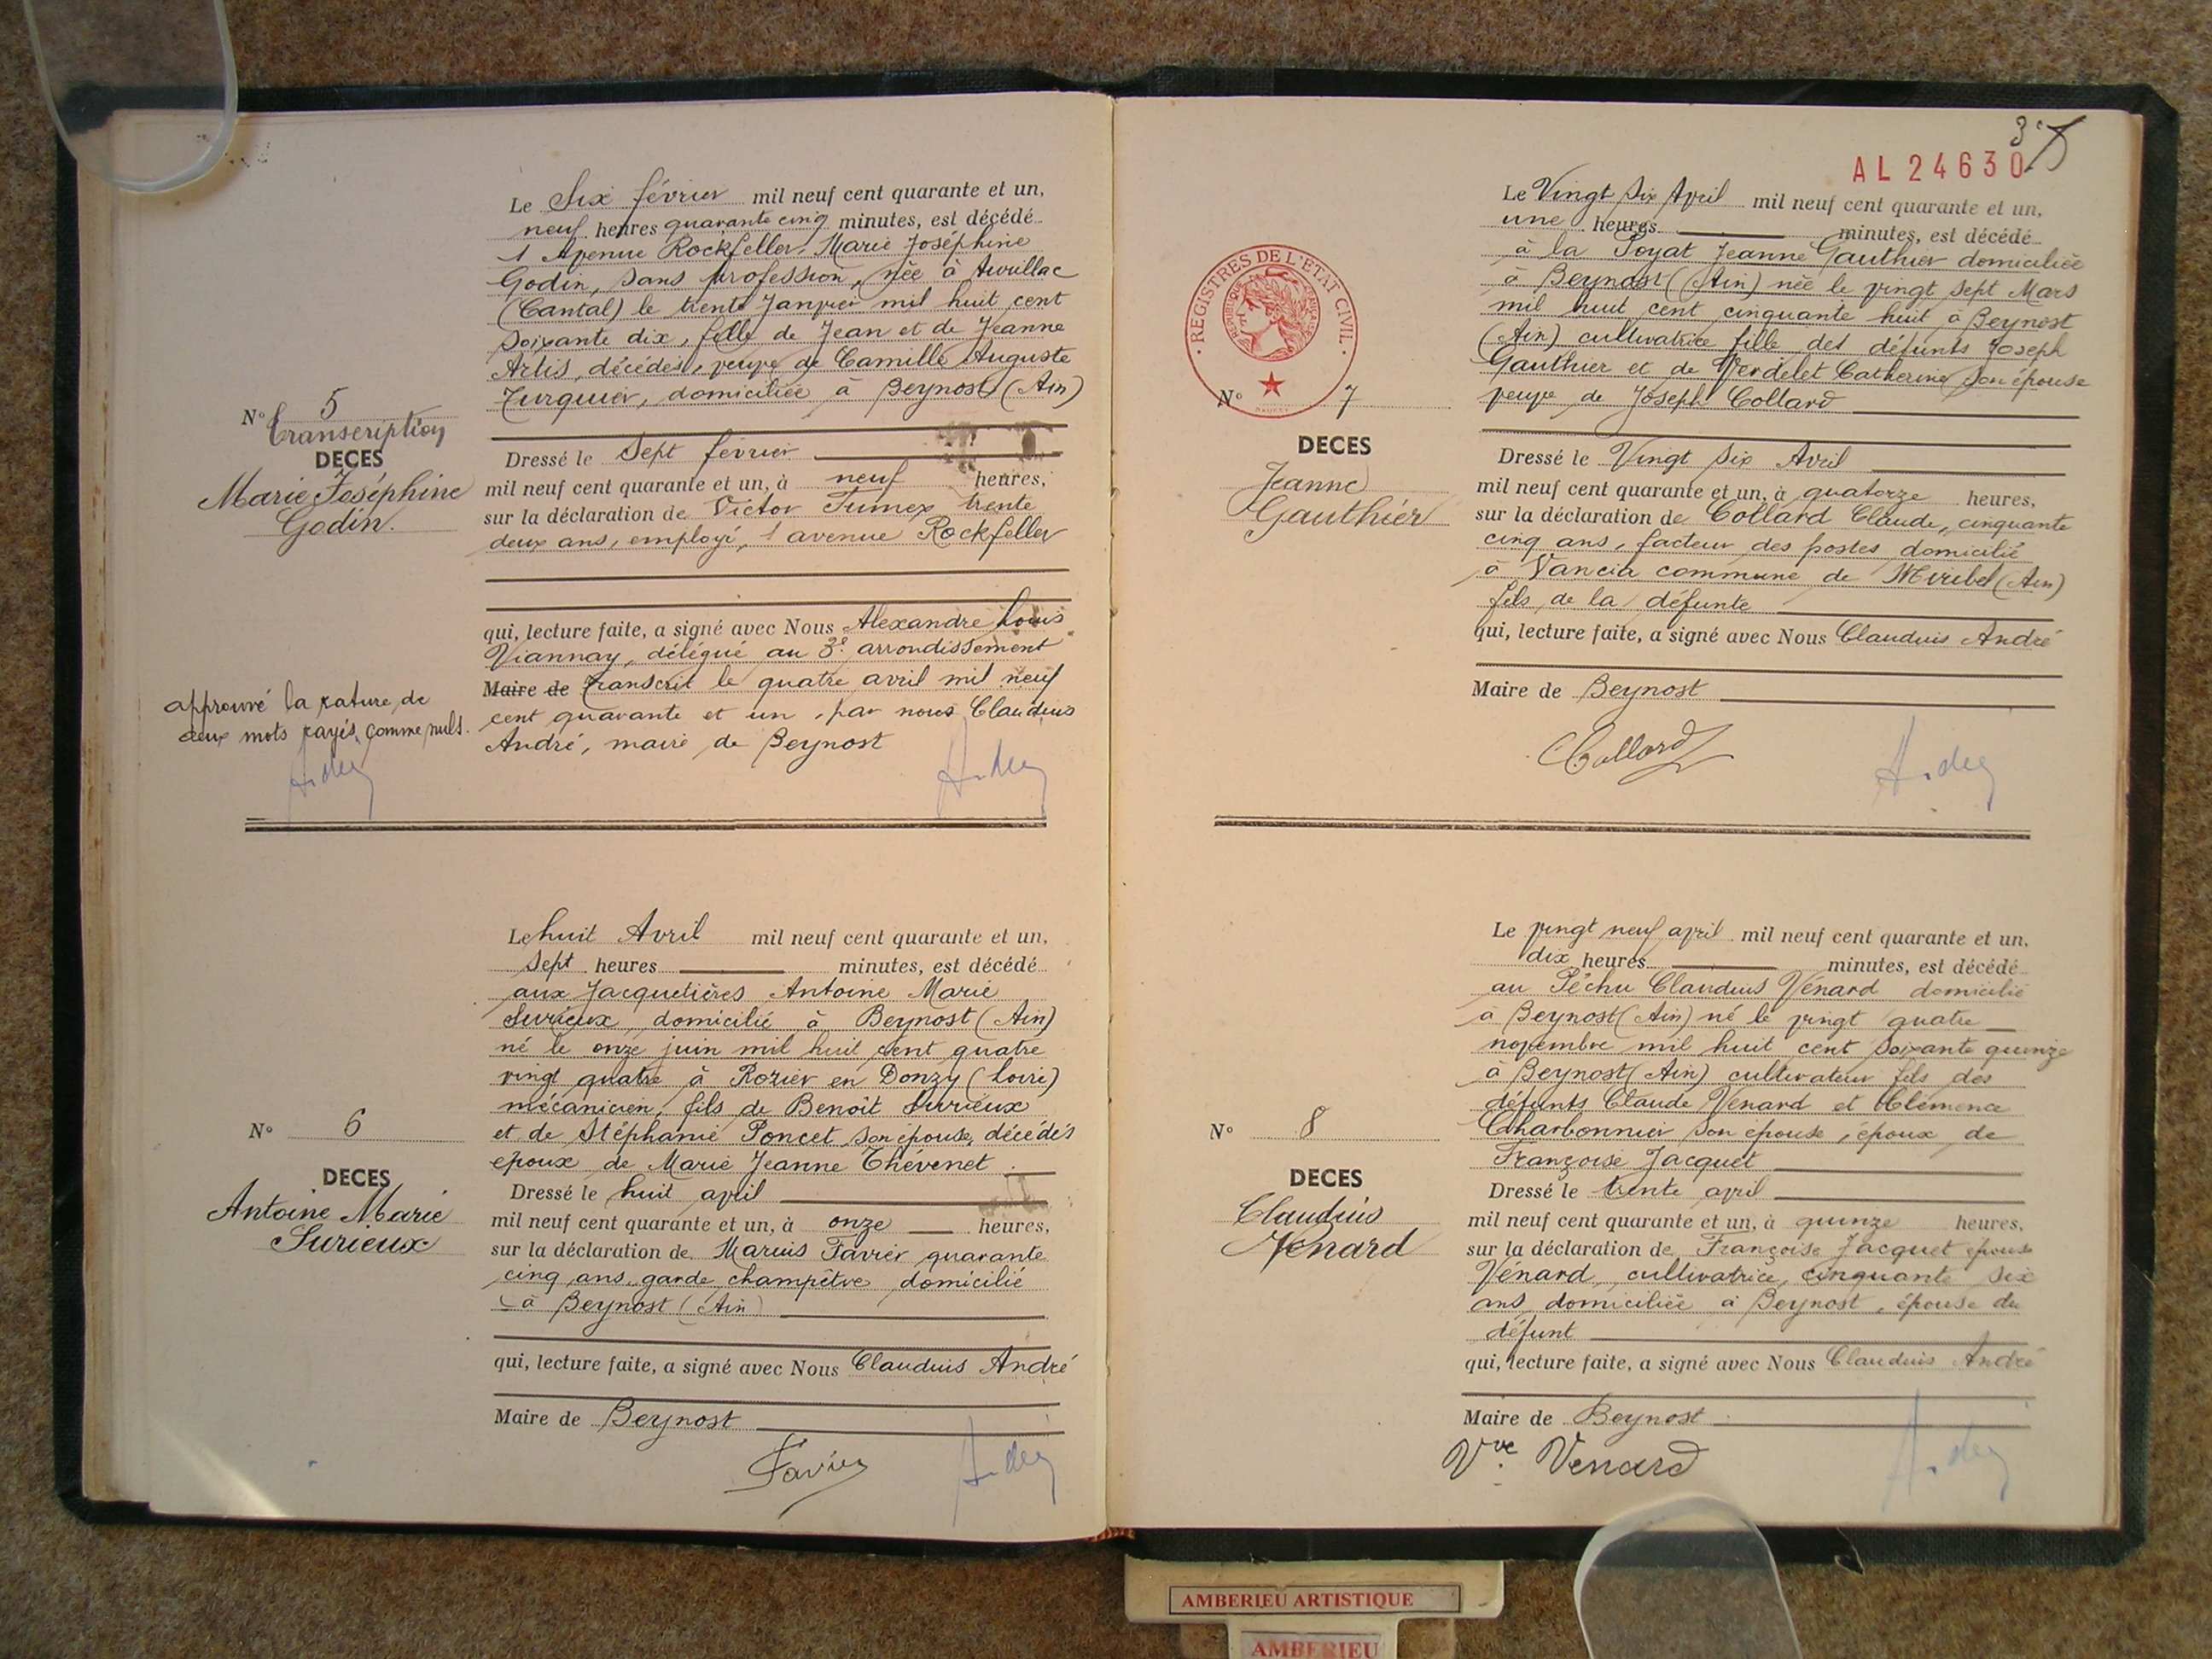 Le Six février mil neuf cent quarante et un,
neuf heures quarante cinq minutes, est décédé
1 Avenue Rockfeller, Marie Joséphine
Godin, sans profession, née à Aurillac
(Cantal) le trente Janvier mil huit cent
soixante dix, fille de Jean et de Jeanne
Artis, décédés, veuve de Camille Auguste
Turquier, domiciliée à Beynost (Ain)
N° 5
Transcription
DECES
Marie Joséphine
Godin.
Dressé le Sept février
mil neuf cent quarante et un, à neuf heures,
sur la déclaration de Victor Tumex trente
deux ans, employé, 1 avenue Rockfeller
qui, lecture faite, a signé avec Nous Alexandre Louis
Viannay, délégué au 3e arrondissement
Maire de Transcrit le quatre avril mil neuf
cent quarante et un, par nous Claudius
André, maire de Beynost
approuvé la rature de
deux mots rayés comme nuls.
Le huit Avril mil neuf cent quarante et un,
sept heures minutes, est décédé
aux Jacquetières Antoine Marie
Surieux domicilié à Beynost (Ain)
né le onze juin mil huit cent quatre
vingt quatre à Rozier en Donzy (Loire)
mécanicien, fils de Benoît Surieux
et de Stéphanie Poncet son épouse, décédés
époux de Marie Jeanne Thévenet
N° 6
DECES
Antoine Marie
Surieux
Dressé le huit avril
mil neuf cent quarante et un, à onze heures,
sur la déclaration de Marius Favier quarante
cinq ans, garde champêtre domicilié
à Beynost (Ain)
qui, lecture faite, a signé avec Nous Claudius André
Maire de Beynost
Favier
3e
AL 24630
Le Vingt Six Avril mil neuf cent quarante et un,
une heures minutes, est décédé
à la Poyat Jeanne Gauthier domiciliée
à Beynost (Ain) née le vingt sept Mars
mil huit cent cinquante huit à Beynost
(Ain) cultivatrice fille des défunts Joseph
Gauthier et de Verdelet Catherine son épouse
veuve de Joseph Collard
REGISTRES DE L'ÉTAT CIVIL
RÉPUBLIQUE FRANÇAISE
N° 7
DECES
Jeanne
Gauthier
Dressé le Vingt Six Avril
mil neuf cent quarante et un, à quatorze heures,
sur la déclaration de Collard Claude, cinquante
cinq ans, facteur des postes domicilié
à Vancia commune de Miribel (Ain)
fils de la défunte
qui, lecture faite, a signé avec Nous Claudius André
Maire de Beynost
Collard
Le vingt neuf avril mil neuf cent quarante et un,
dix heures minutes, est décédé
au Péchu Claudius Vénard domicilié
à Beynost (Ain) né le vingt quatre
novembre mil huit cent soixante quinze
à Beynost (Ain) cultivateur fils des
défunts Claude Venard et Clémence
Charbonnier son épouse, époux de
Françoise Jacquet
N° 8
DECES
Claudius
Vénard
Dressé le trente avril
mil neuf cent quarante et un, à quinze heures,
sur la déclaration de Françoise Jacquet épouse
Vénard, cultivatrice, cinquante six
ans domiciliée à Beynost, épouse du
défunt
qui, lecture faite, a signé avec Nous Claudius André
Maire de Beynost
Vve Venard
AMBERIEU ARTISTIQUE
AMBERIEU